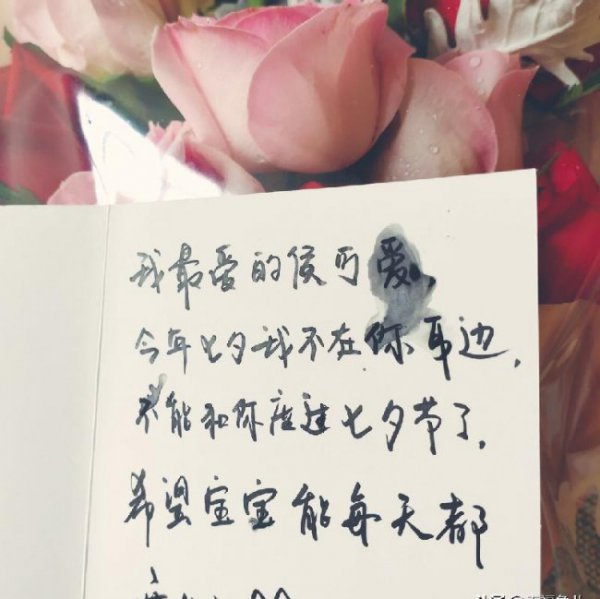 我最爱的侯可爱,
今年七夕我不在你耳边,
不能和你度过七夕节了,
希望宝宝能每天都